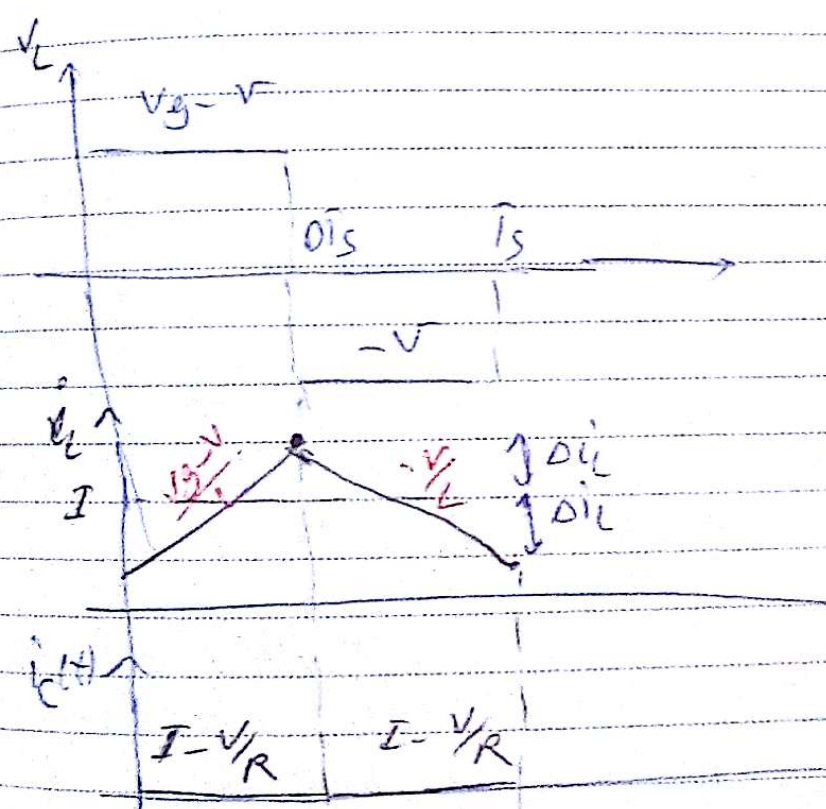 V_L
Vg - V
DTs Ts
-V
i_L
Vg-V/L -V/L Δi_L
I Δi_L
i_c(t)
I - V/R I - V/R